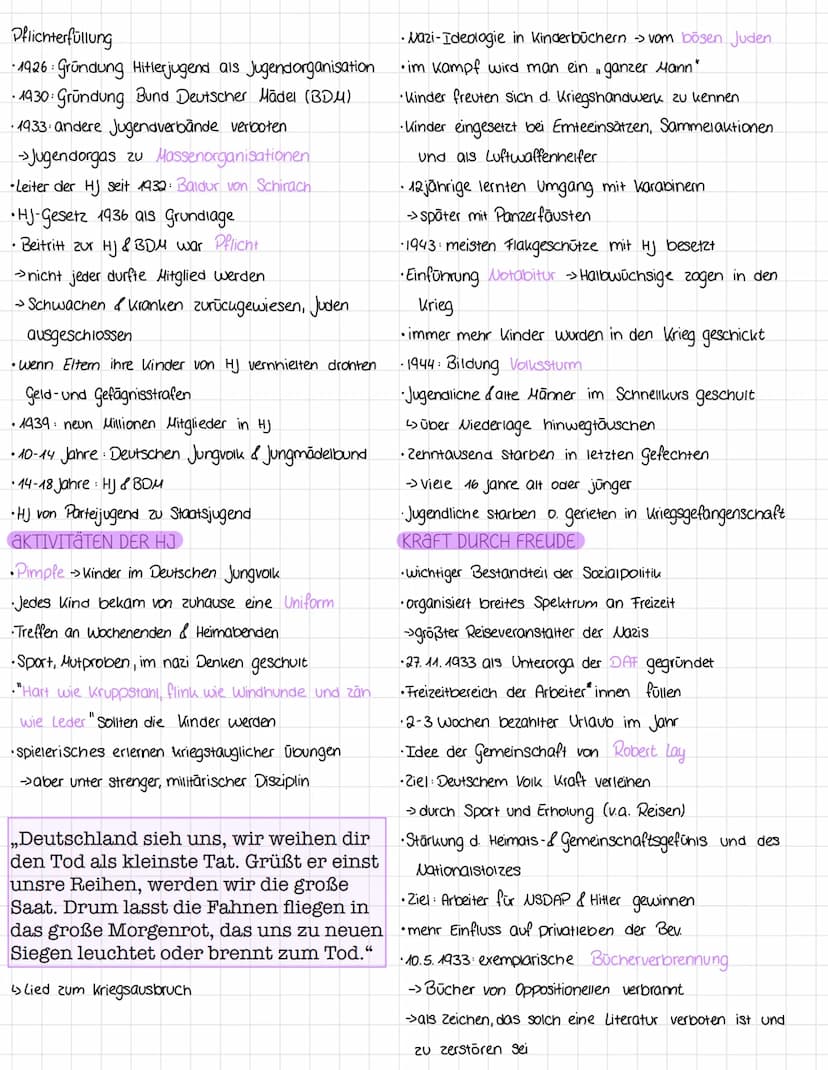 Pflichterfüllung
·1926: Gründung Hitlerjugend als Jugendorganisation
·1930: Gründung Bund Deutscher Mädel (BDM)
·1933: andere Jugendverbände verboten
→Jugendorgas zu Massenorganisationen
·Leiter der HJ seit 1932: Baldur von Schirach
·HJ-Gesetz 1936 als Grundlage
·Beitritt zur HJ & BDM war Pflicht
→nicht jeder durfte Mitglied werden
→Schwachen & Kranken zurückgewiesen, Juden
ausgeschlossen
·wenn Eltern ihre Kinder von HJ vernhielten drohten
Geld- und Gefägnisstrafen
·1939: neun Millionen Mitglieder in HJ
·10-14 Jahre: Deutschen Jungvolk & Jungmädelbund
·14-18 Jahre: HJ & BDM
·HJ von Parteijugend zu Staatsjugend
AKTIVITÄTEN DER HJ
·Pimpfe → Kinder im Deutschen Jungvolk
·Jedes Kind bekam von zuhause eine Uniform
·Treffen an Wochenenden & Heimabenden
·Sport, Mutproben, im nazi Denken geschult
·"Hart wie Kruppstahl, flink wie Windhunde und zäh
wie Leder" sollten die Kinder werden
·spielerisches erlernen kriegstauglicher Übungen
→aber unter strenger, militärischer Disziplin
„Deutschland sieh uns, wir weihen dir
den Tod als kleinste Tat. Grüßt er einst
unsre Reihen, werden wir die große
Saat. Drum lasst die Fahnen fliegen in
das große Morgenrot, das uns zu neuen
Siegen leuchtet oder brennt zum Tod.“
↳ Lied zum Kriegsausbruch
·Nazi-Ideologie in Kinderbüchern → vom bösen Juden
·im Kampf wird man ein „ganzer Mann"
·Kinder freuten sich d. Kriegshandwerk zu kennen
·Kinder eingesetzt bei Ernteeinsätzen, Sammelaktionen
und als Luftwaffenhelfer
·12jährige lernten Umgang mit Karabinern
→später mit Panzerfäusten
·1943: meisten Flakgeschütze mit HJ besetzt
·Einführung Notabitur → Halbwüchsige zogen in den
Krieg
·immer mehr Kinder wurden in den Krieg geschickt
·1944: Bildung Volkssturm
·Jugendliche & alte Männer im Schnellkurs geschult
↳ über Niederlage hinwegtäuschen
·Zehntausend starben in letzten Gefechten
→ viele 16 Jahre alt oder jünger
·Jugendliche starben o. gerieten in Kriegsgefangenschaft
KRAFT DURCH FREUDE
·wichtiger Bestandteil der Sozialpolitik
·organisiert breites Spektrum an Freizeit
→größter Reiseveranstalter der Nazis
·27.11.1933 als Unterorga der DAF gegründet
·Freizeitbereich der Arbeiter*innen füllen
·2-3 Wochen bezahlter Urlaub im Jahr
·Idee der Gemeinschaft von Robert Lay
·Ziel: Deutschem Volk Kraft verleihen
→ durch Sport und Erholung (v.a. Reisen)
·Stärkung d. Heimats- & Gemeinschaftsgefühls und des
Nationalstolzes
·Ziel: Arbeiter für NSDAP & Hitler gewinnen
·mehr Einfluss auf Privatleben der Bev.
·10.5.1933: exemplarische Bücherverbrennung
→ Bücher von Oppositionellen verbrannt
→als Zeichen, das solch eine Literatur verboten ist und
zu zerstören sei